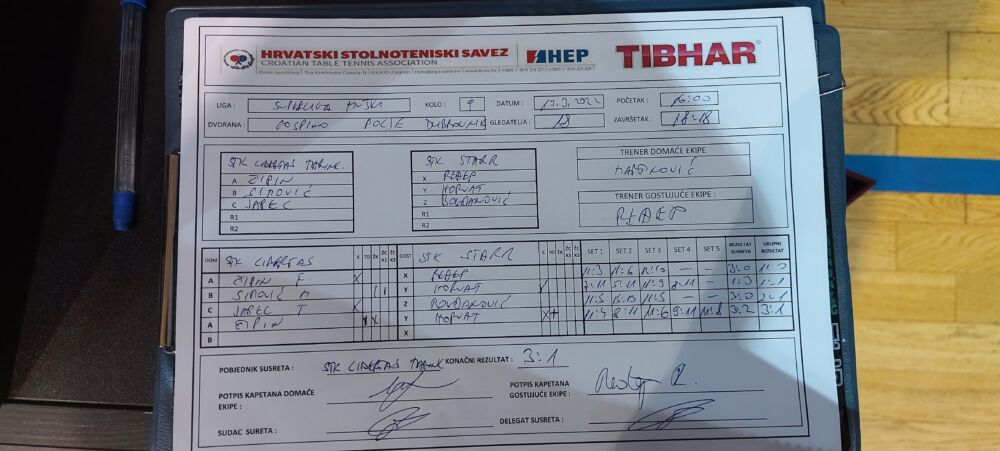 HRVATSKI STOLNOTENISKI SAVEZ HEP TIBHAR
CROATIAN TABLE TENNIS ASSOCIATION
LIGA : SUPERLIGA MUŠKI KOLO : 9 DATUM : POČETAK : 16:00
DVORANA : GOSPINO POLJE DUBROVNIK GLEDATELJA : 18 ZAVRŠETAK : 18:18
STK LIBERTAS STK STARR TRENER DOMAĆE EKIPE
A ŽIPIN X REDEP
B SIPOVIĆ Y HORVAT
C JAREC Z BOGDANOVIĆ TRENER GOSTUJUĆE EKIPE :
R1 R1 REDEP
R2 R2
DOM STK LIBERTAS S TO ŽK ŽC K1 ŽC K2 GOST STK STARR S TO ŽK ŽC K1 ŽC K2 SET 1 SET 2 SET 3 SET 4 SET 5 REZULTAT SUSRETA UKUPNI REZULTAT
A ŽIPIN F X X REDEP 11:3 11:6 – – 3:0 1:0
B SIPOVIĆ Y HORVAT 5:11 11:9 8:11 – 1:3 1:1
C JAREC T X Z BOGDANOVIĆ 11:5 11:5 – – 3:0 2:1
A ŽIPIN Y HORVAT 8:11 11:6 9:11 11:8 3:2 3:1
B X
POBJEDNIK SUSRETA : STK LIBERTAS KONAČNI REZULTAT : 3:1
POTPIS KAPETANA DOMAĆE EKIPE :
POTPIS KAPETANA GOSTUJUĆE EKIPE :
SUDAC SURETA : DELEGAT SUSRETA :